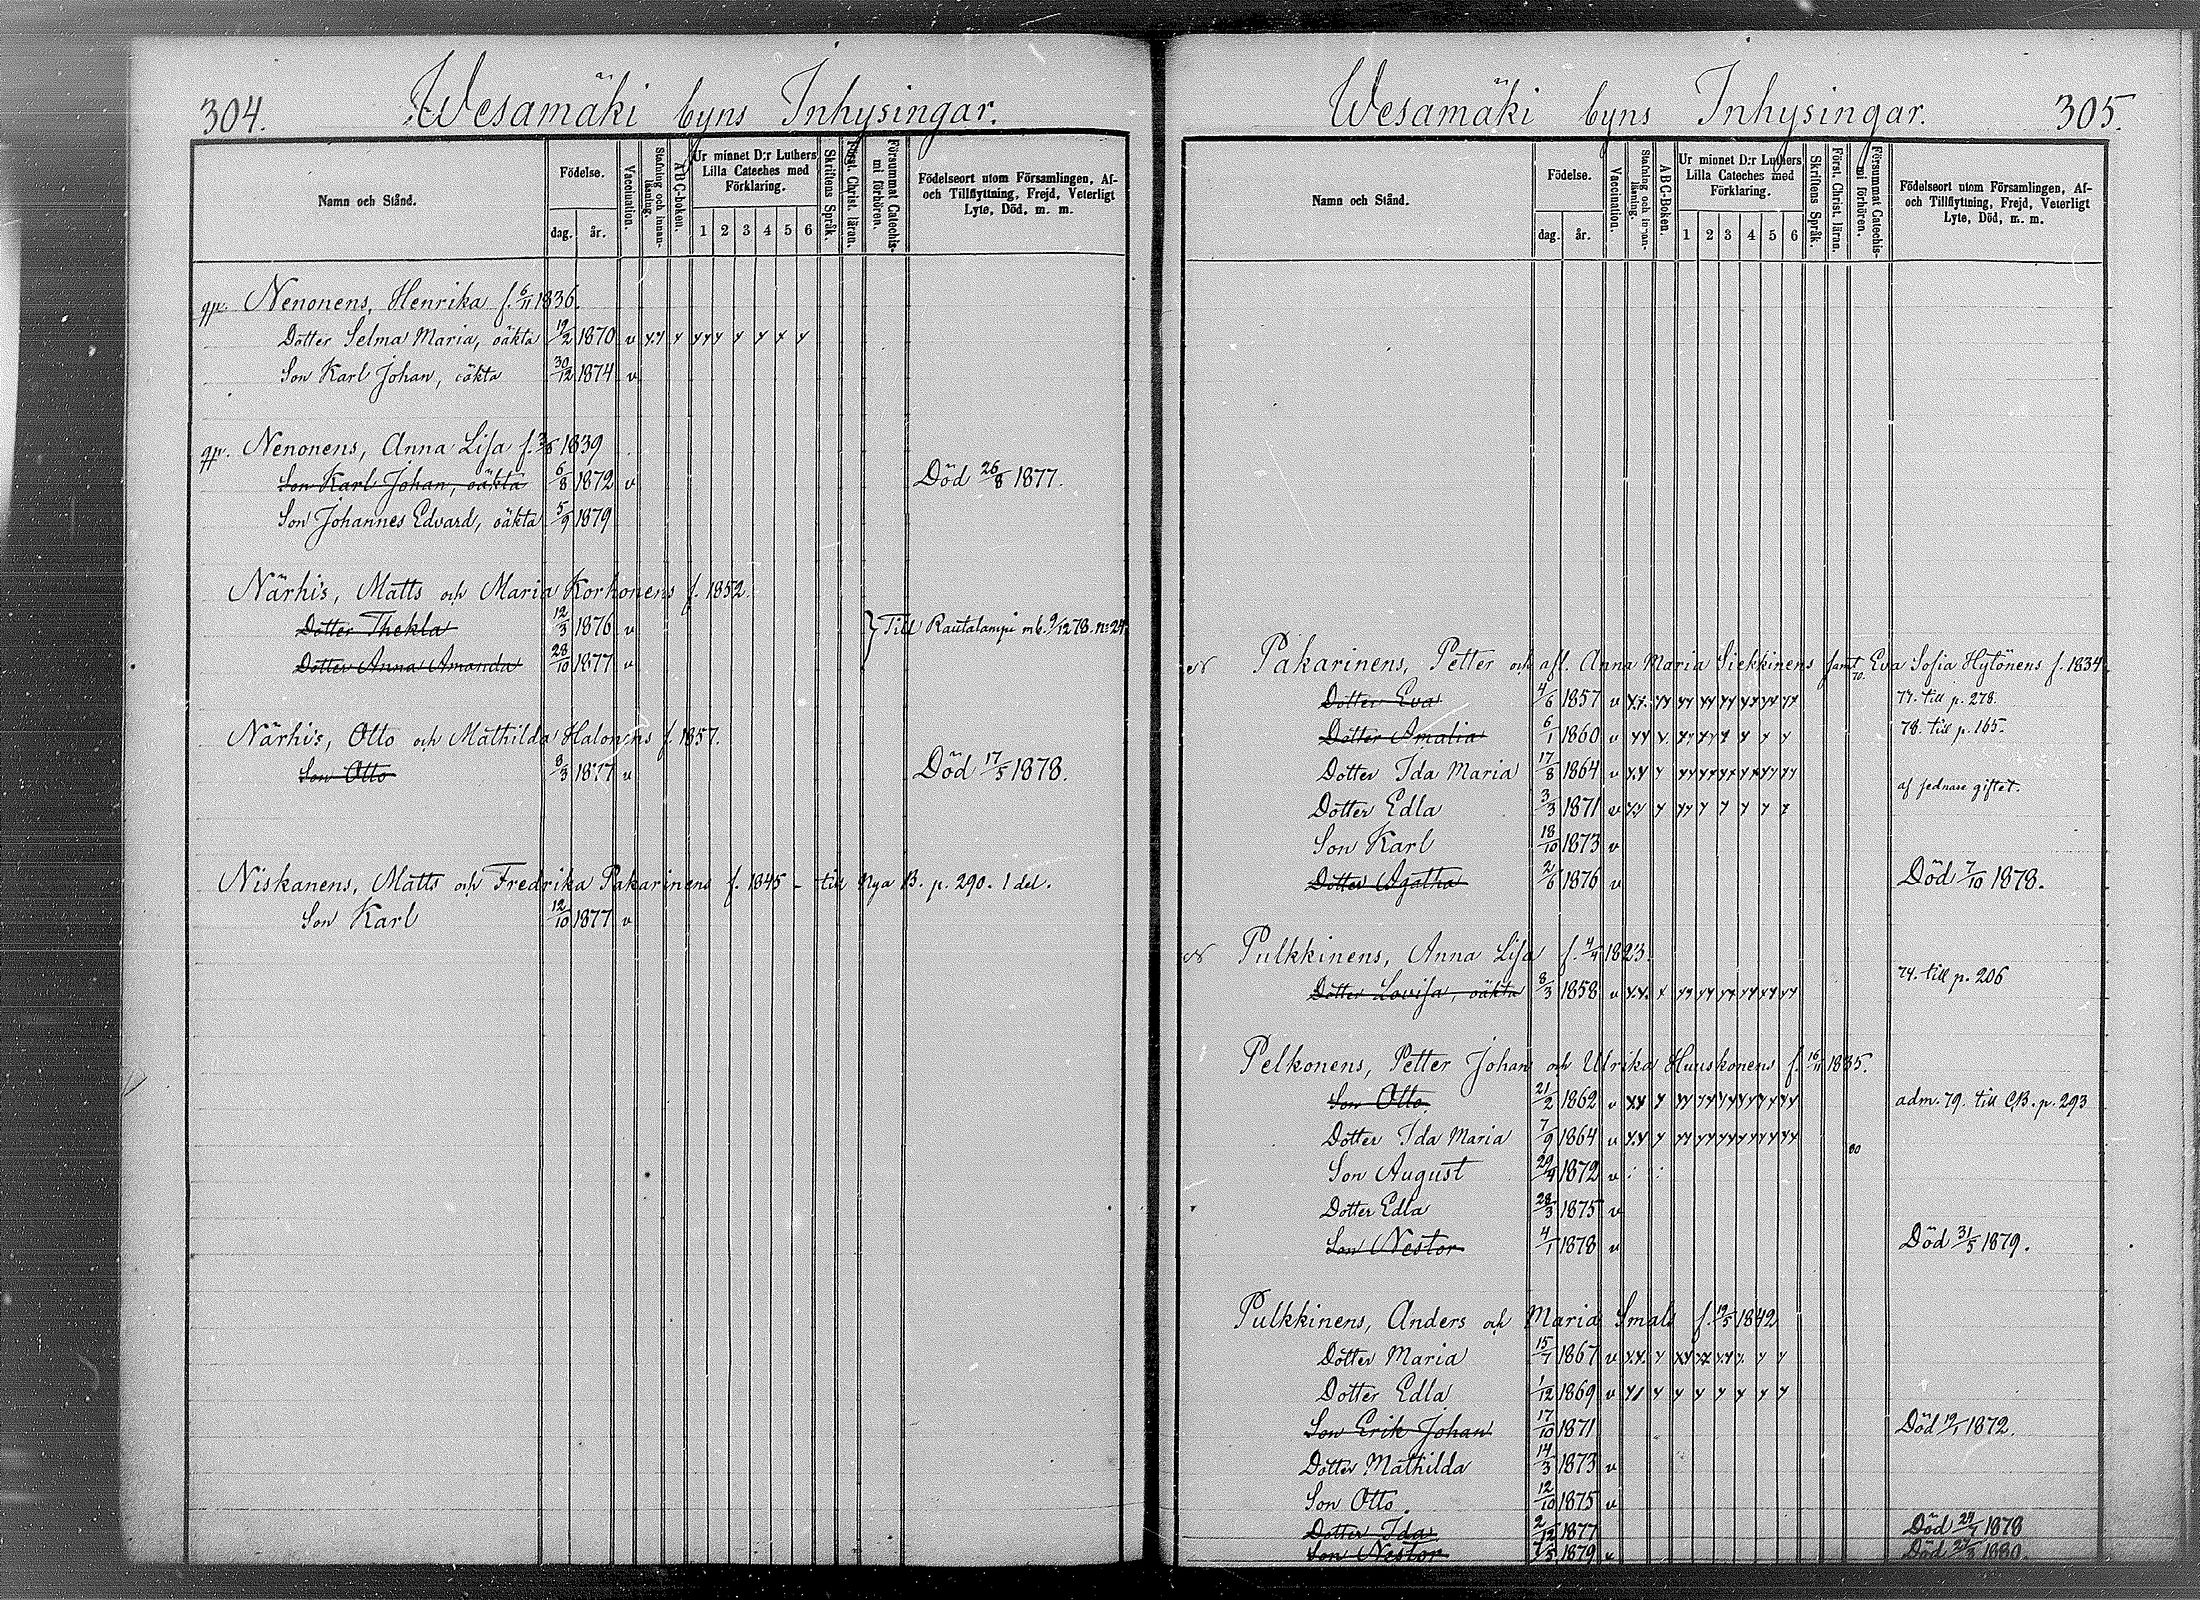 304.
Wesamäki byns Inhysingar.
Namn och Stånd.
Födelse.
dag.
år.
Vaccination.
Stafning och innan-läsning.
A B C-boken.
Ur minnet D:r Luthers Lilla Cateches med Förklaring.
1 2 3 4 5 6
Skriftens Språk.
Först. Christ. läran.
Försummat Catechis-mi förhören.
Födelseort utom Församlingen, Af- och Tillflyttning, Frejd, Veterligt Lyte, Död, m. m.
Nenonens, Henrika f. 6/11 1836.
Dotter Selma Maria, oäkta 19/2 1870 v
Son Karl Johan, oäkta 30/12 1874 v
Nenonens, Anna Lisa 1839
Son Karl Johan, oäkta 6/8 1872 v Död 26/8 1877.
Son Johannes Edvard, oäkta 5/9 1879
Närhi's, Matts och Maria Korhonens f. 1852.
Dotter Thekla 12/3 1876 v } Till Rautalampi mb. 9/12 78. no 24
Dotter Anna Amanda 28/10 1877 v
Närhi's, Otto och Mathilda Halonens f. 1857.
Son Otto 8/3 1877 v Död 17/5 1878.
Niskanens, Matts och Fredrika Pakarinens f. 1845 - till Nya B. p. 290. 1 del.
Son Karl 12/10 1877 v
Wesamäki byns Inhysingar.
305.
Namn och Stånd.
Födelse.
dag.
år.
Vaccination.
Stafning och innan-läsning.
A B C-Boken.
Ur minnet D:r Luthers Lilla Cateches med Förklaring.
1 2 3 4 5 6
Skriftens Språk.
Först. Christ. läran.
Försummat Catechis-mi förhören.
Födelseort utom Församlingen, Af- och Tillflyttning, Frejd, Veterligt Lyte, Död, m. m.
N Pakarinens, Petter och afl. Anna Maria Siekkinens samt Eva Sofia Hytönens f. 1834.
Dotter Eva 4/6 1857 v 77. till p. 278.
Dotter Amalia 6/1 1860 v 78. till p. 165.
Dotter Ida Maria 17/8 1864 v
af sednare giftet.
Dotter Edla 3/3 1871 v
Son Karl 18/10 1873 v
Dotter Agatha 2/6 1876 v Död 7/10 1878.
N Pulkkinens, Anna Lisa f. 4/4 1823.
Dotter Lovisa, oäkta 8/3 1858 v 74. till p. 206
Pelkonens, Petter Johan och Ulrika Huuskonens f. 16/11 1835.
Son Otto 21/2 1862 v adm. 79. till CB. p. 293
Dotter Ida Maria 7/9 1864 v 80
Son August 1872 v
Dotter Edla 28/3 1875 v
Son Nestor 4/1 1878 v Död 31/5 1879.
Pulkkinens, Anders och Maria Smals f. 19/5 1842
Dotter Maria 15/7 1867 v
Dotter Edla 1/12 1869 v
Son Erik Johan 17/10 1871 Död 19/1 1872.
Dotter Mathilda 14/3 1873 v
Son Otto 12/10 1875 v
Dotter Ida 2/12 1877 Död 1878
Son Nestor 1879 v Död 1880.